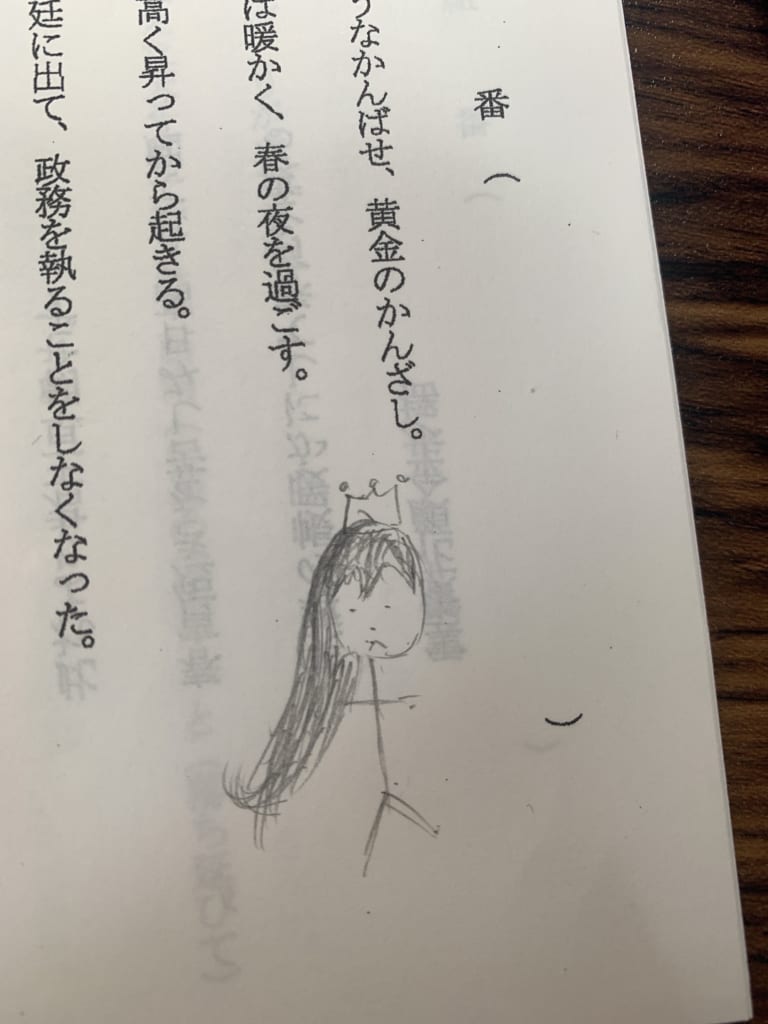 番 ( )
うなかんばせ、黄金のかんざし。
は暖かく、春の夜を過ごす。
高く昇ってから起きる。
廷に出て、政務を執ることをしなくなった。